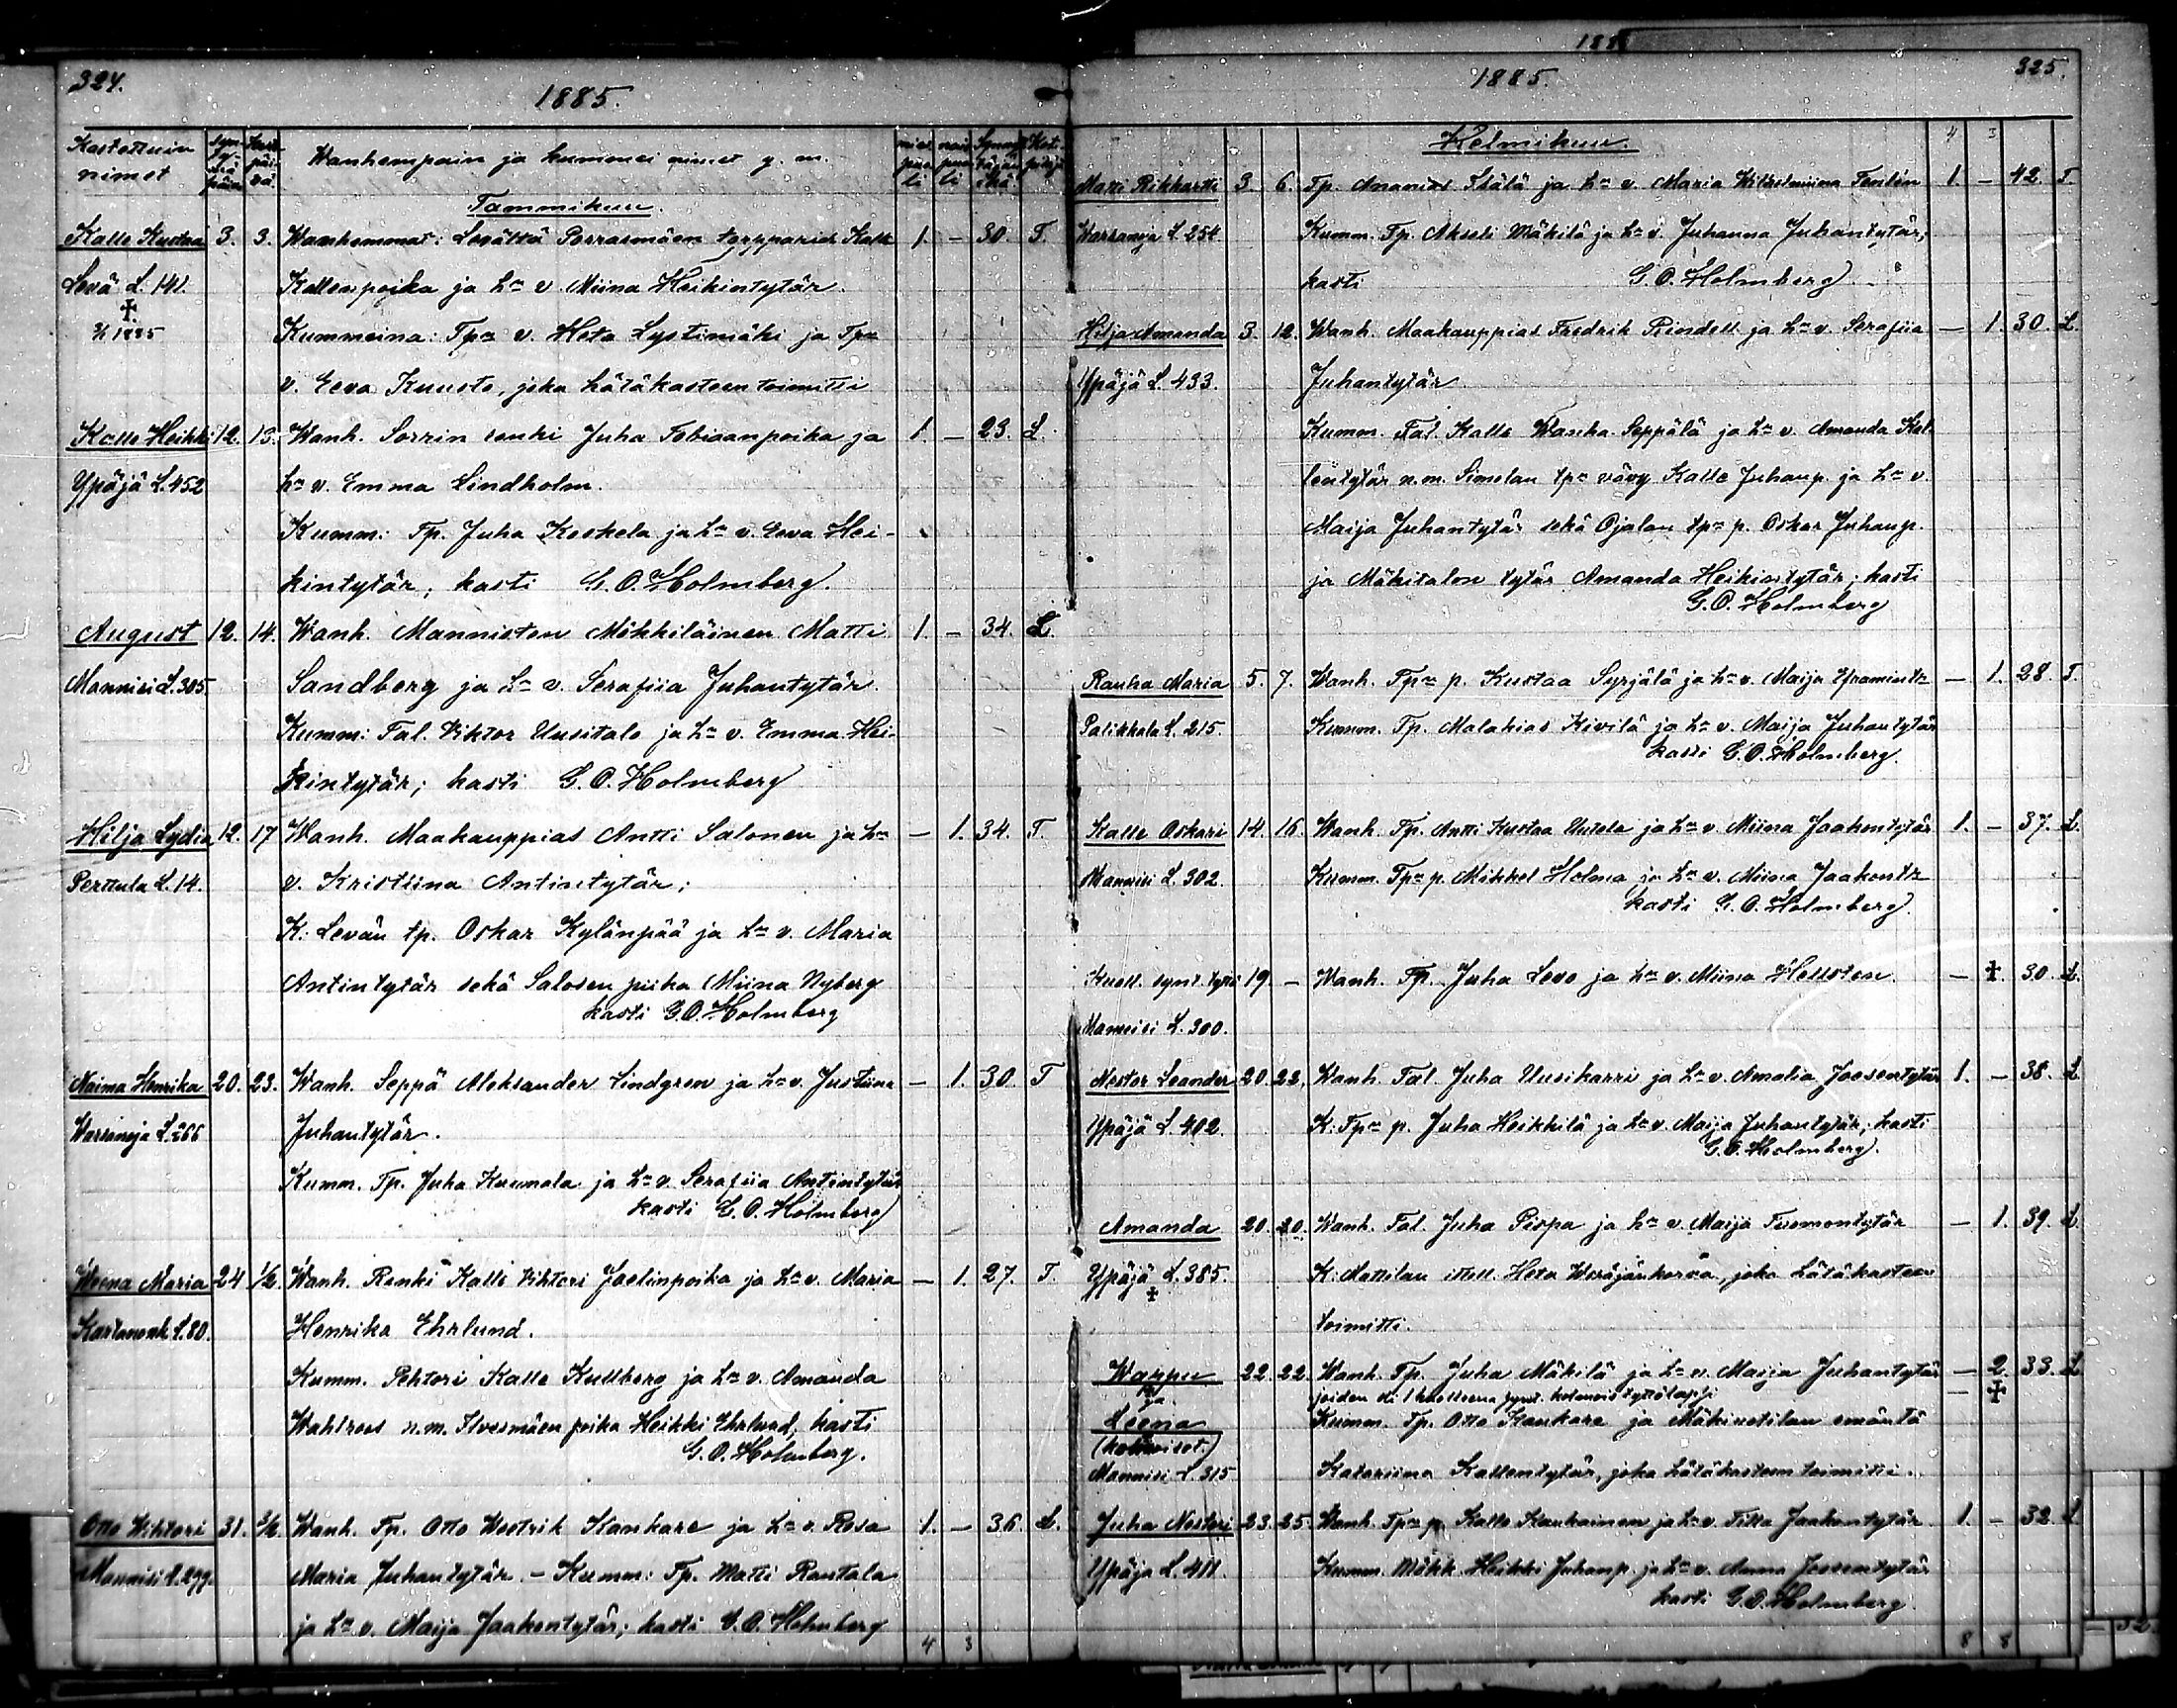 324.
1885.
Kastettuin nimet
Syn-ty-mä päivä
Kast päi-vä.
Wanhempain ja kummei nimet y. m.
mies puo-li
nais puo-li
Synnyttäjän ikä.
Tammikuu.
Kalle Kustaa 3. 3. Wanhemmat: Levältä Porrasmäen torpparid Kalle 1. – 30. T.
Levä L. 141. Kallenpoika ja hra v. Miina Heikintytär.
✝
3/1 1885 Kummeina: Tpn v. Heta Lystimäki ja Tpn
v. Eeva Kuusto, joka hätäkasteen toimitti
Kalle Heikki 12. 13. Wanh. Sorrin renki Juha Tobiaanpoika ja 1. – 23. L.
Ypäjä L. 452 hra v. Emma Lindholm.
Kumm: Tp. Juha Koskela ja hra v. Eeva Hei-
kintytär; kasti G. O. Holmberg.
August 12. 14. Wanh. Mannisten Mökkiläinen Matti 1. – 34. L.
Mannisi L. 305. Sandberg ja hra v. Serafiia Juhantytär.
Kumm: Tal. Viktor Uusitalo ja hra v. Emma Hei-
kintytär; kasti G. O. Holmberg
Hilja Lydia 12. 17 Wanh. Maakauppias Antti Salonen ja hra – 1. 34. T.
Perttula L. 14. v. Kristiina Antintytär;
K: Levän tp. Oskar Kylänpää ja hra v. Maria
Antintytär sekä Salosen piika Miina Nyberg
kasti G. O. Holmberg
Naima Henrika 20. 23. Wanh. Seppä Aleksander Lindgren ja hra v. Justiina – 1. 30. T
Warsanoja L. 266 Juhantytär.
Kumm. Tp. Juha Kuumola ja hra v. Serafiia Antintytär
kasti G. O. Holmberg
Weena Maria 24 1/2. Wanh. Renki Kalle Vihtori Joelinpoika ja hra v. Maria – 1. 27. T.
Kartanonk L. 80. Henrika Ehrlund.
Kumm. Pehtori Kalle Kullberg ja hra v. Amanda
Wahlroos n.m. Ilvesmäen poika Heikki Ehrlund, kasti
G. O. Holmberg.
Otto Wihtori 31. 3/2. Wanh. Tp. Otto Westrik Kankare ja hra v. Rosa 1. – 36. L.
Mannisi L. 299. Maria Juhantytär. – Kumm: Tp. Matti Rantala
ja hra v. Maija Jaakontytär; kasti G. O. Holmberg
4 3
1885.
325.
Helmikuu. 4 3
Matti Rikhartti 3 6. Tp. Ananias Ihälä ja hra v. Maria Wilhelmiina Tenlén 1. – 42. T
Warsanoja L. 254. Kumm. Tp. Akseli Mäkilä ja hra v. Juhanna Juhantytär;
kasti G. O. Holmberg
Hilja Amanda 3. 12. Wanh. Maakauppias Fredrik Rindell ja hra v. Serafiia – 1. 30. L
Ypäjä L. 433. Juhantytär
Kumm. Tal. Kalle Wanha Seppälä ja hra v. Amanda Kal-
lentytär n.m. Simolan tpn vävy Kalle Juhanp. ja hra v.
Maija Juhantytär sekä Ojalan tpn p. Oskar Juhanp.
ja Mäkitalon tytär Amanda Heikintytär; kasti
G. O. Holmberg
Rauha Maria 5. 7. Wanh. Tpn p. Kustaa Syrjälä ja hra v. Maija Eframintr – 1. 28. T.
Palikkala L. 215. Kumm. Tp. Malakias Kivilä ja hra v. Maija Juhantytär
kasti G. O. Holmberg.
Kalle Oskari 14. 16. Wanh. Tp. Antti Kustaa Uutela ja hra v. Miina Jaakontytär 1. – 37. L.
Mannisi L. 302. Kumm. Tpn p. Mikkel Holma ja hra v. Miina Jaakontr
kasti G. O. Holmberg.
Kuoll. synt. tyttö 19. – Wanh. Tp. Juha Levo ja hra v. Miina Hellsten. – ✝. 30. L.
Mannisi L. 300.
Nestor Leander 20. 22. Wanh. Tal. Juha Uusikarri ja hra v. Amalia Joosentytär 1. – 38. L
Ypäjä L. 402. K: Tpn p. Juha Heikkilä ja hra v. Maija Juhantytär; kasti
G. O. Holmberg.
Amanda 20. 20. Wanh. Tal. Juha Pispa ja hra v. Maija Tuomontytär – 1. 39. L.
Ypäjä L. 385. K. Mattilan itsell. Heta Weräjänkorva, joka hätäkasteen
✝
toimitti.
Wappu 22. 22 Wanh. Tp. Juha Mäkilä ja hra v. Maija Juhantytär – 2. 33. L
ja joiden oli 1 kuolleena synt. kolmois tyttölapsi – ✝
Leena Kumm. Tp. Otto Kankare ja Mäkinotilan emäntä
(kolmoiset.)
Mannisi L. 315 Katariina Kallentytär, joka hätäkasteen toimitti.
Juha Nestori 23. 25. Wanh. Tpn p. Kalle Kauhainen ja hra v. Tilta Jaakontytär 1. – 32. L
Ypäjä L. 411. Kumm. Mökk. Heikki Juhanp. ja hra v. Anna Joosentytär
kasti G. O. Holmberg.
8 8